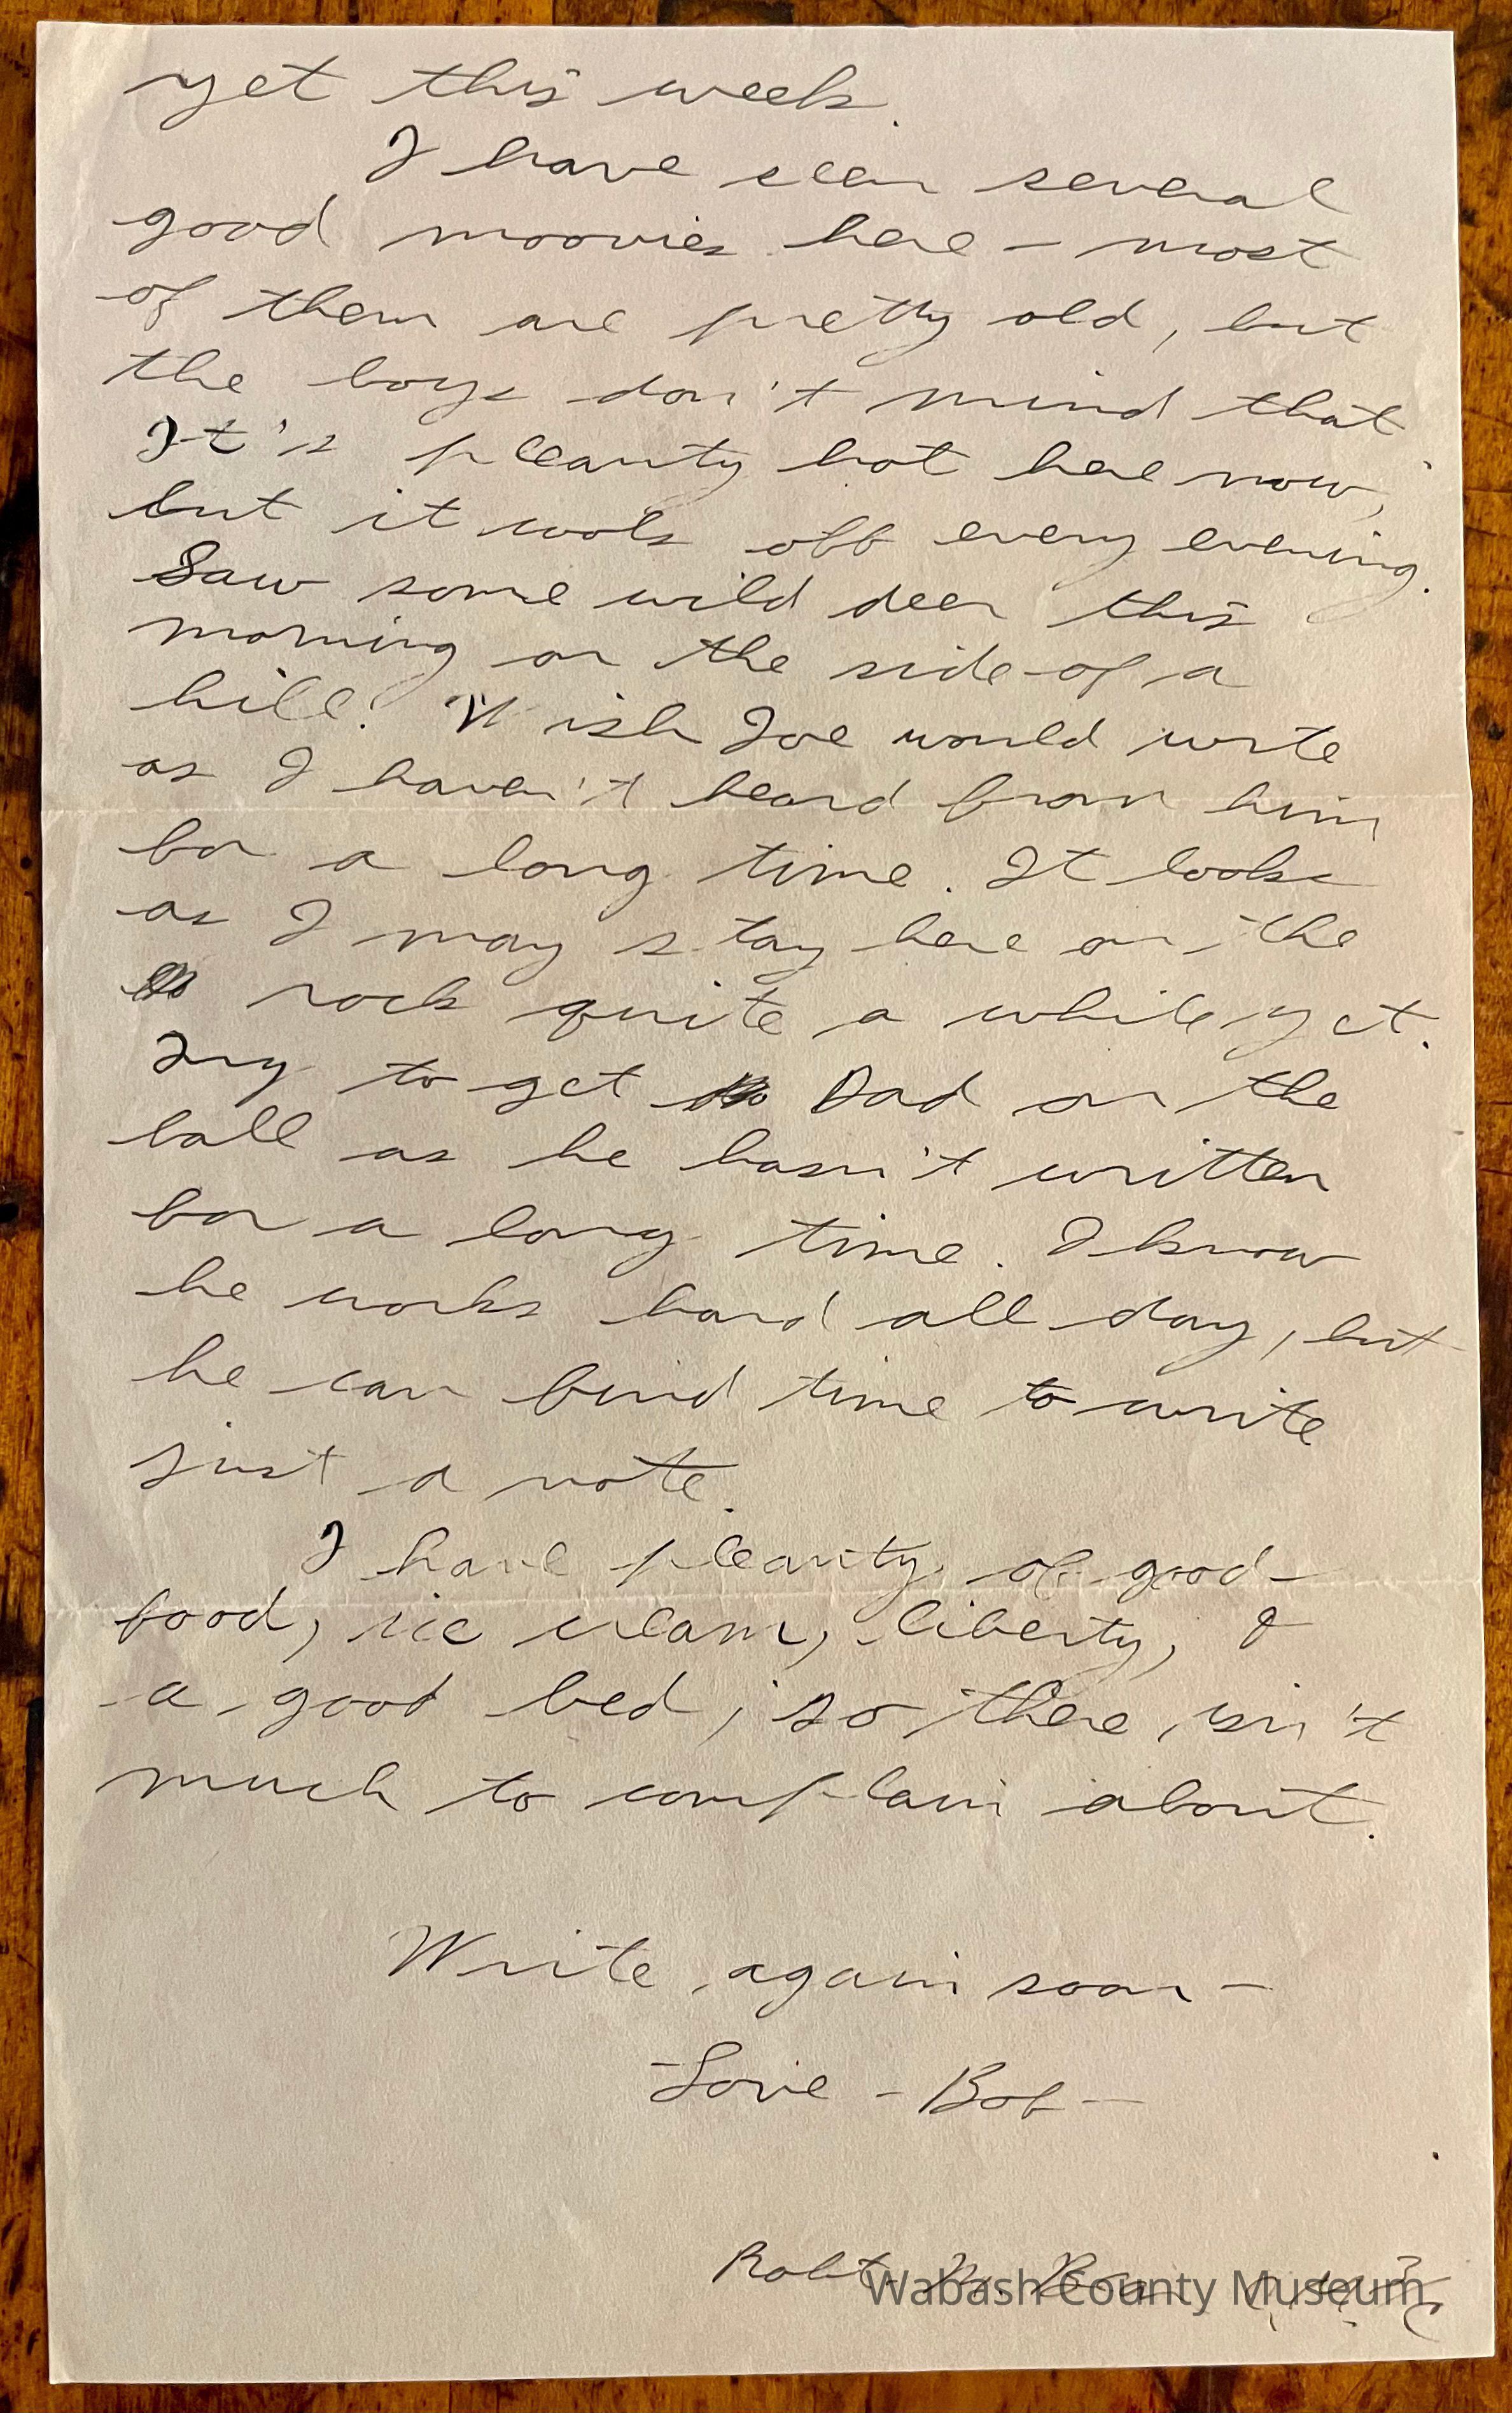 yet this week.
I have seen several
good moovies here — most
of them are pretty old, but
the boys don't mind that.
It's pleanty hot here now,
but it cools off every evening.
Saw some wild deer this
morning on the side of a
hill! Wish Joe would write
as I haven't heard from him
for a long time. It looks
as I may stay here on the
rock quite a while yet.
Try to get Dad on the
ball as he hasn't written
for a long time. I know
he works hard all day, but
he can find time to write
just a note.
I have pleanty of good
food, ice cream, liberty, &
a good bed; so there isn't
much to complain about.
Write again soon —
Love — Bob —
Robt
Wabash County Museum